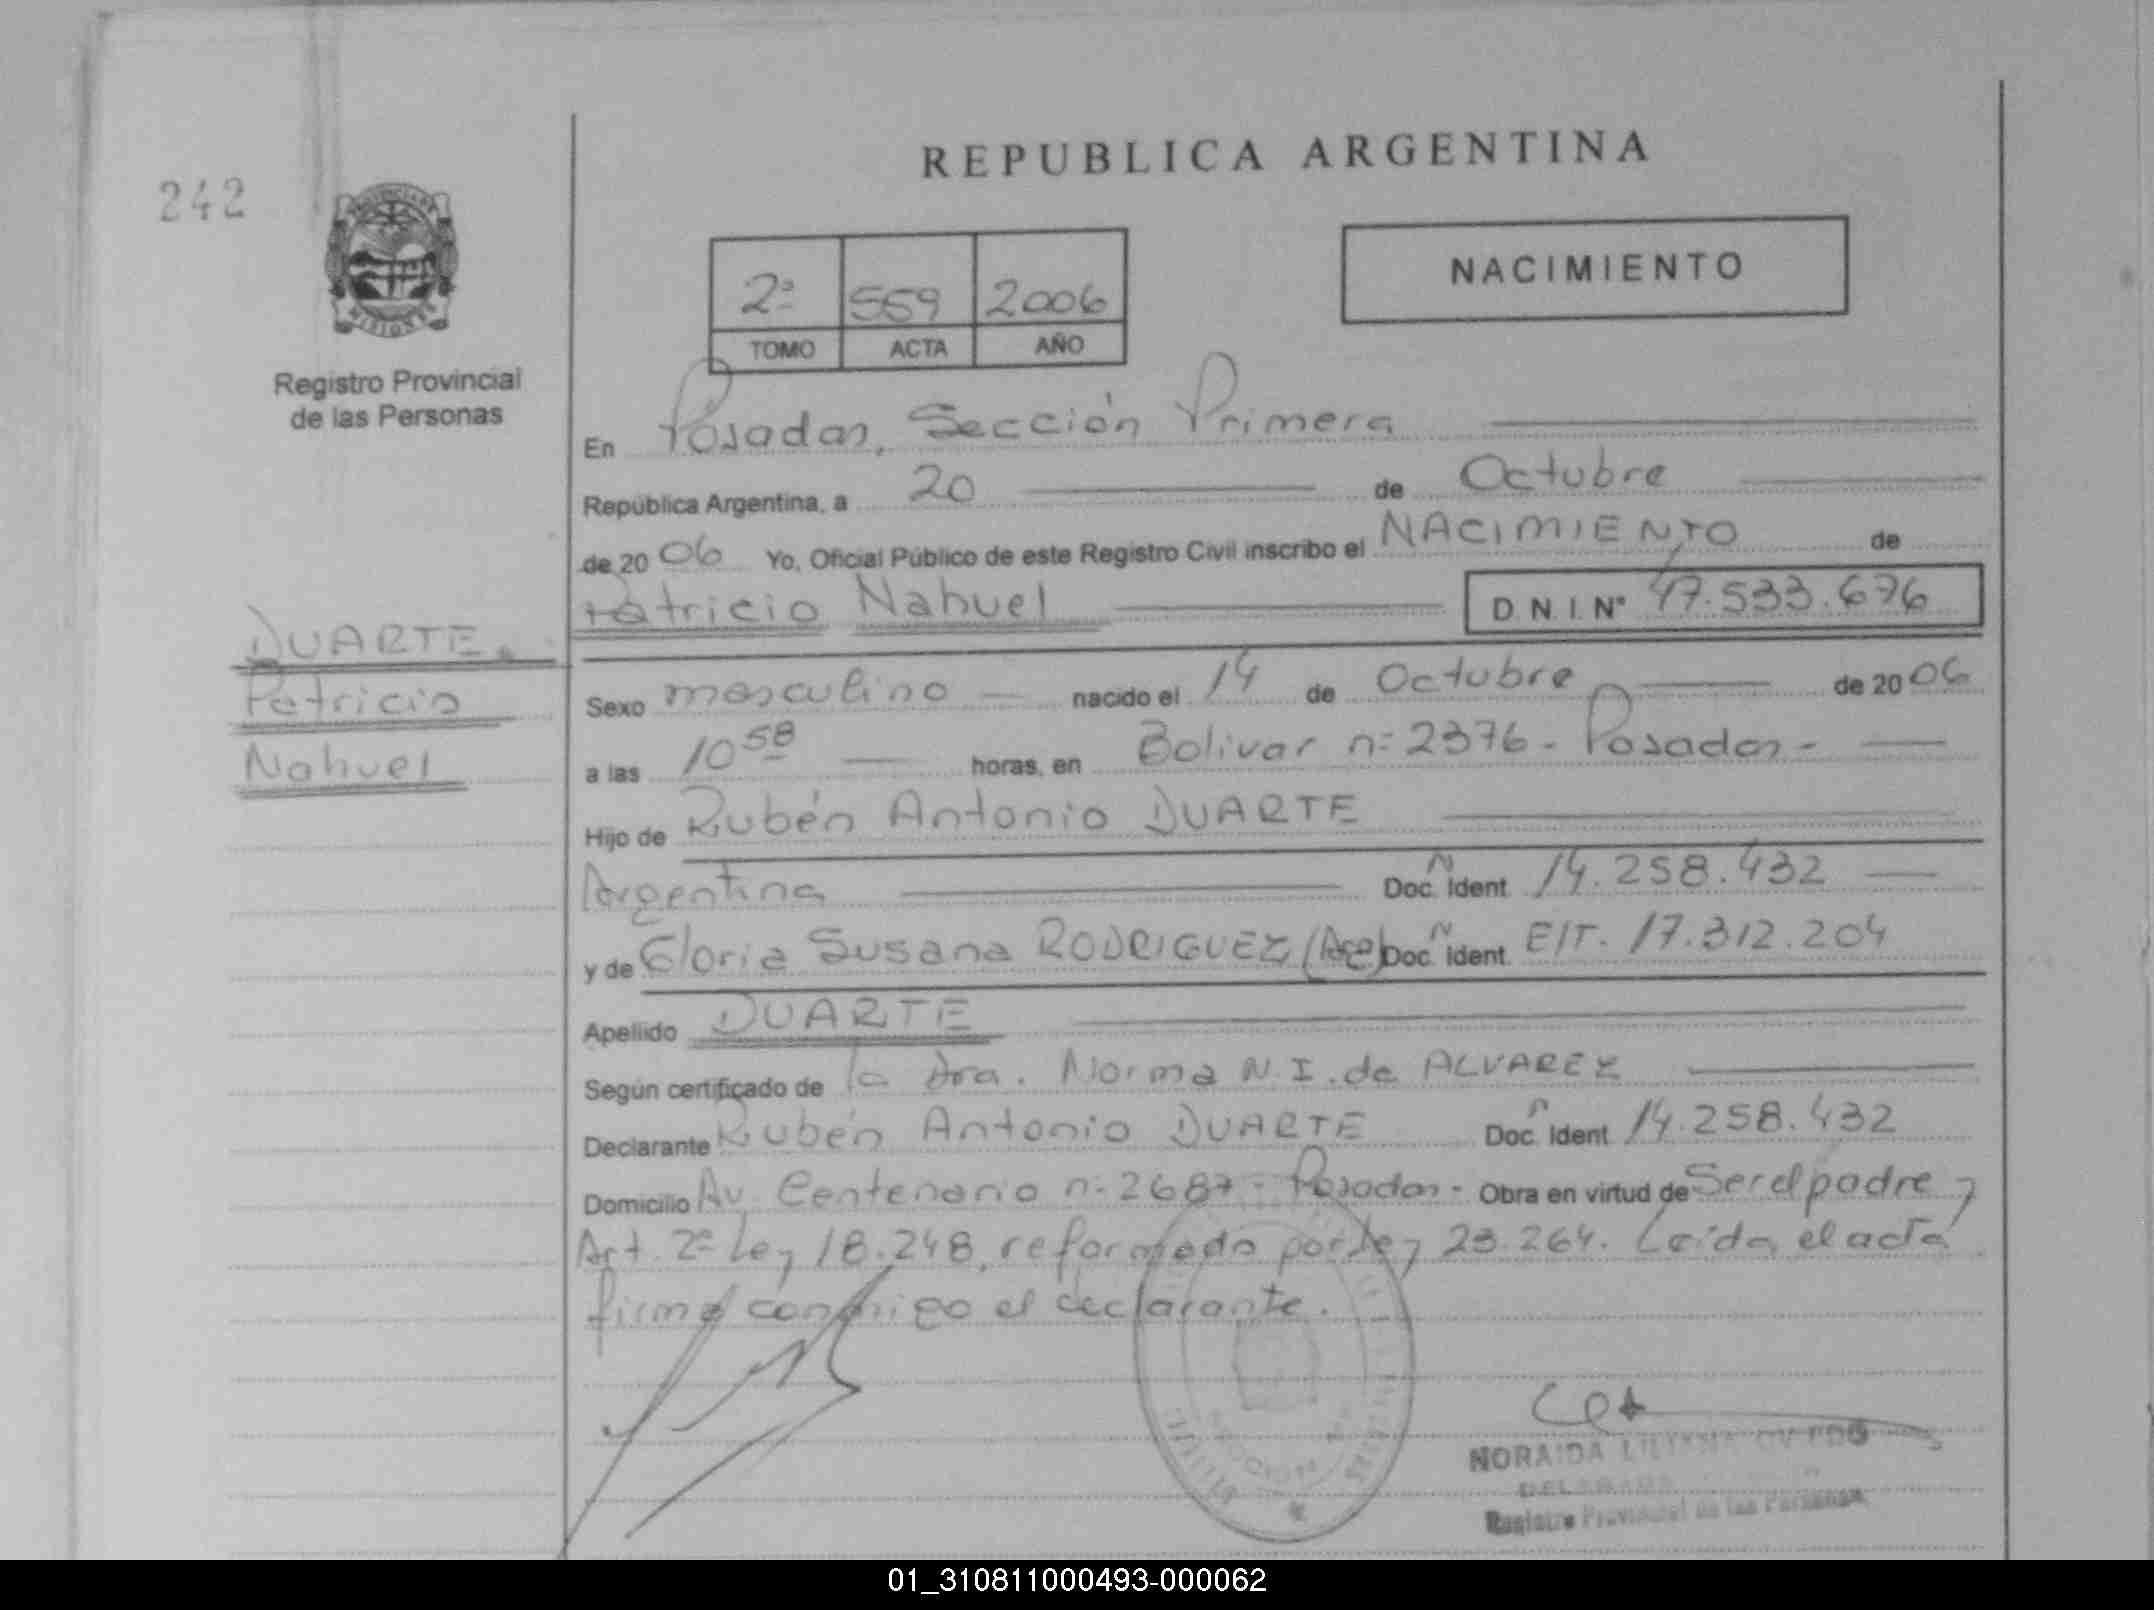 REPUBLICA ARGENTINA
242
NACIMIENTO
2º 559 2006
TOMO ACTA AÑO
Registro Provincial
de las Personas
En Posadas, Sección Primera
República Argentina, a 20 de Octubre
de 2006 Yo, Oficial Público de este Registro Civil inscribo el NACIMIENTO de
Patricio Nahuel D.N.I. Nº 47.533.676
DUARTE.
Patricio
Nahuel
Sexo masculino nacido el 14 de Octubre de 2006
a las 10 58 horas, en Bolivar nº 2376 - Posadas -
Hijo de Rubén Antonio DUARTE
Argentina Doc. Ident. Ñ 14.258.432
y de Gloria Susana RODRIGUEZ (Arg) Doc. Ident. Ñ E/T. 17.312.204
Apellido DUARTE
Según certificado de la Dra. Norma N. I. de ALVAREZ
Declarante Rubén Antonio DUARTE Doc. Ident ñ 14.258.432
Domicilio Av. Centenario nº 2687 - Posadas - Obra en virtud de Ser el padre y
Art. 2º Ley 18.248, reformado por Ley 23.264. Leída el acta
firma conmigo el declarante.
NORAIDA LILIANA
Registro Provincial de las Personas
01_310811000493-000062